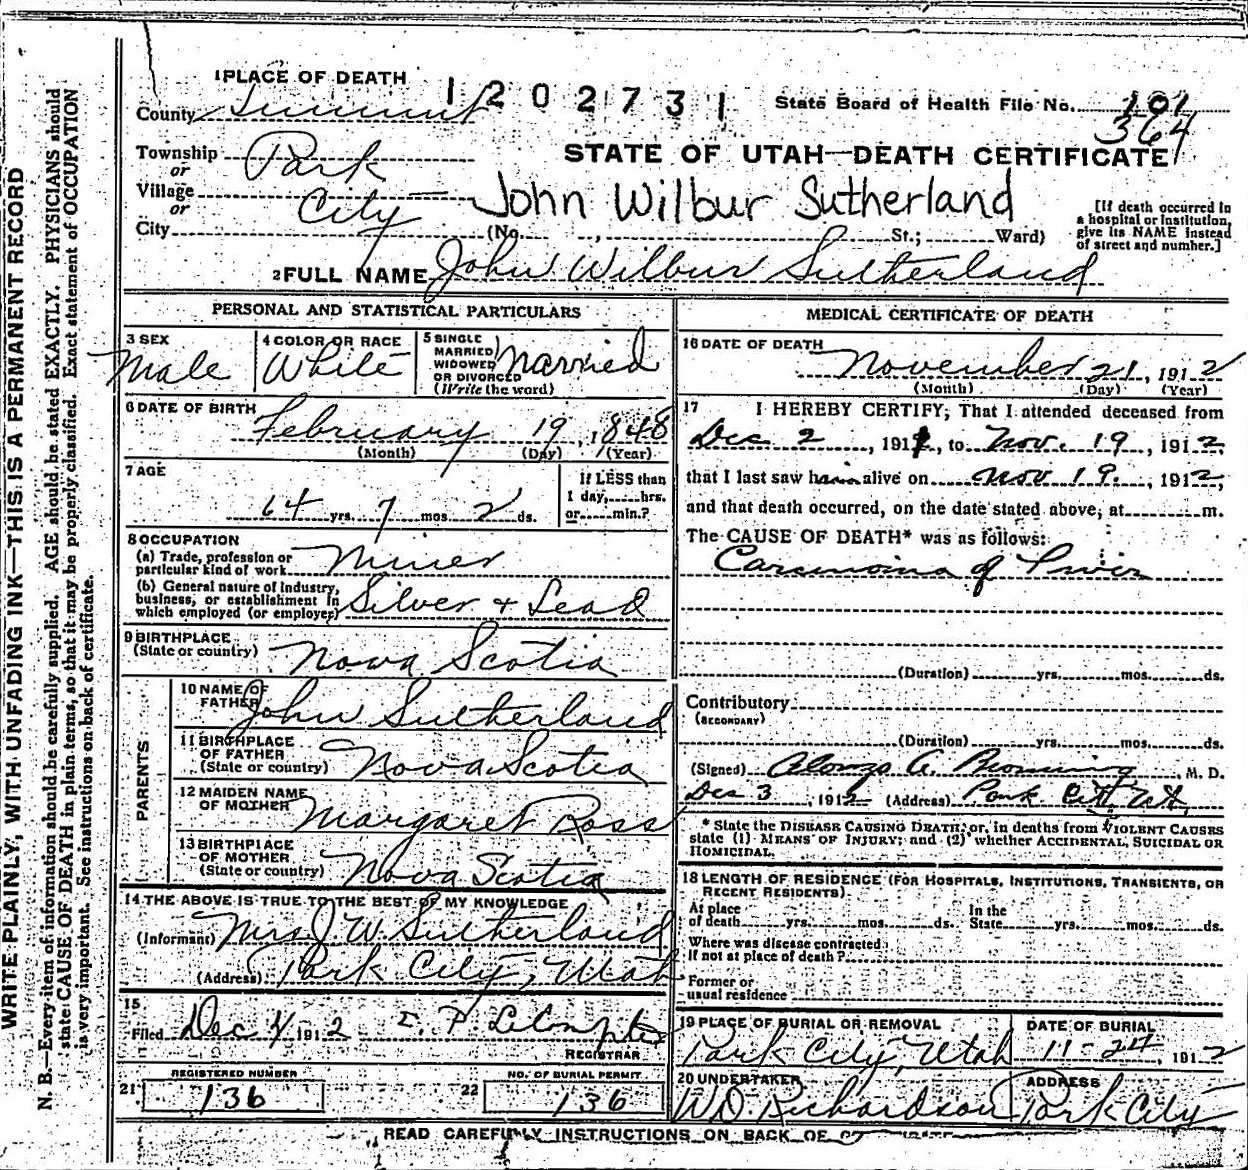 1 PLACE OF DEATH
1 2 0 2 7 3 1
State Board of Health File No. 101
364
County Summit
STATE OF UTAH—DEATH CERTIFICATE
Township or Village Park
City
or
City
John Wilbur Sutherland
(No. , St.; Ward)
[If death occurred in a hospital or institution, give its NAME instead of street and number.]
2 FULL NAME John Wilbur Sutherland
PERSONAL AND STATISTICAL PARTICULARS
3 SEX
Male
4 COLOR OR RACE
White
5 SINGLE MARRIED WIDOWED OR DIVORCED (Write the word)
Married
6 DATE OF BIRTH
February 19, 1848
(Month) (Day) (Year)
7 AGE
64 yrs. 7 mos. 2 ds.
If LESS than 1 day, hrs. or min.?
8 OCCUPATION
(a) Trade, profession or particular kind of work Miner
(b) General nature of industry, business, or establishment in which employed (or employer) Silver & Lead
9 BIRTHPLACE (State or country) Nova Scotia
PARENTS
10 NAME OF FATHER John Sutherland
11 BIRTHPLACE OF FATHER (State or country) Nova Scotia
12 MAIDEN NAME OF MOTHER Margaret Ross
13 BIRTHPLACE OF MOTHER (State or country) Nova Scotia
14 THE ABOVE IS TRUE TO THE BEST OF MY KNOWLEDGE
(Informant) Mrs J. W. Sutherland
(Address) Park City, Utah
15
Filed Dec 4 1912
REGISTRAR
21 REGISTERED NUMBER
136
22 NO. OF BURIAL PERMIT
136
MEDICAL CERTIFICATE OF DEATH
16 DATE OF DEATH
November 21, 1912
(Month) (Day) (Year)
17 I HEREBY CERTIFY, That I attended deceased from
Dec 2, 191 , to Nov. 19, 1912,
that I last saw him alive on Nov 19, 1912,
and that death occurred, on the date stated above, at m.
The CAUSE OF DEATH* was as follows:
Carcinoma of Liver
(Duration) yrs. mos. ds.
Contributory
(SECONDARY)
(Duration) yrs. mos. ds.
(Signed) Alonzo C. Browning, M. D.
Dec 3, 1912 (Address) Park City Ut.
* State the DISEASE CAUSING DEATH, or, in deaths from VIOLENT CAUSES
state (1) MEANS OF INJURY; and (2) whether ACCIDENTAL, SUICIDAL OR
HOMICIDAL.
18 LENGTH OF RESIDENCE (FOR HOSPITALS, INSTITUTIONS, TRANSIENTS, OR
RECENT RESIDENTS)
At place of death yrs. mos. ds. In the State yrs. mos. ds.
Where was disease contracted
If not at place of death?
Former or
usual residence
19 PLACE OF BURIAL OR REMOVAL
Park City, Utah
DATE OF BURIAL
11-24, 1912
20 UNDERTAKER
W D. Richardson
ADDRESS
Park City
READ CAREFULLY INSTRUCTIONS ON BACK OF
WRITE PLAINLY, WITH UNFADING INK—THIS IS A PERMANENT RECORD
N. B.—Every item of information should be carefully supplied. AGE should be stated EXACTLY. PHYSICIANS should
state CAUSE OF DEATH in plain terms, so that it may be properly classified. Exact statement of OCCUPATION
is very important. See instructions on back of certificate.